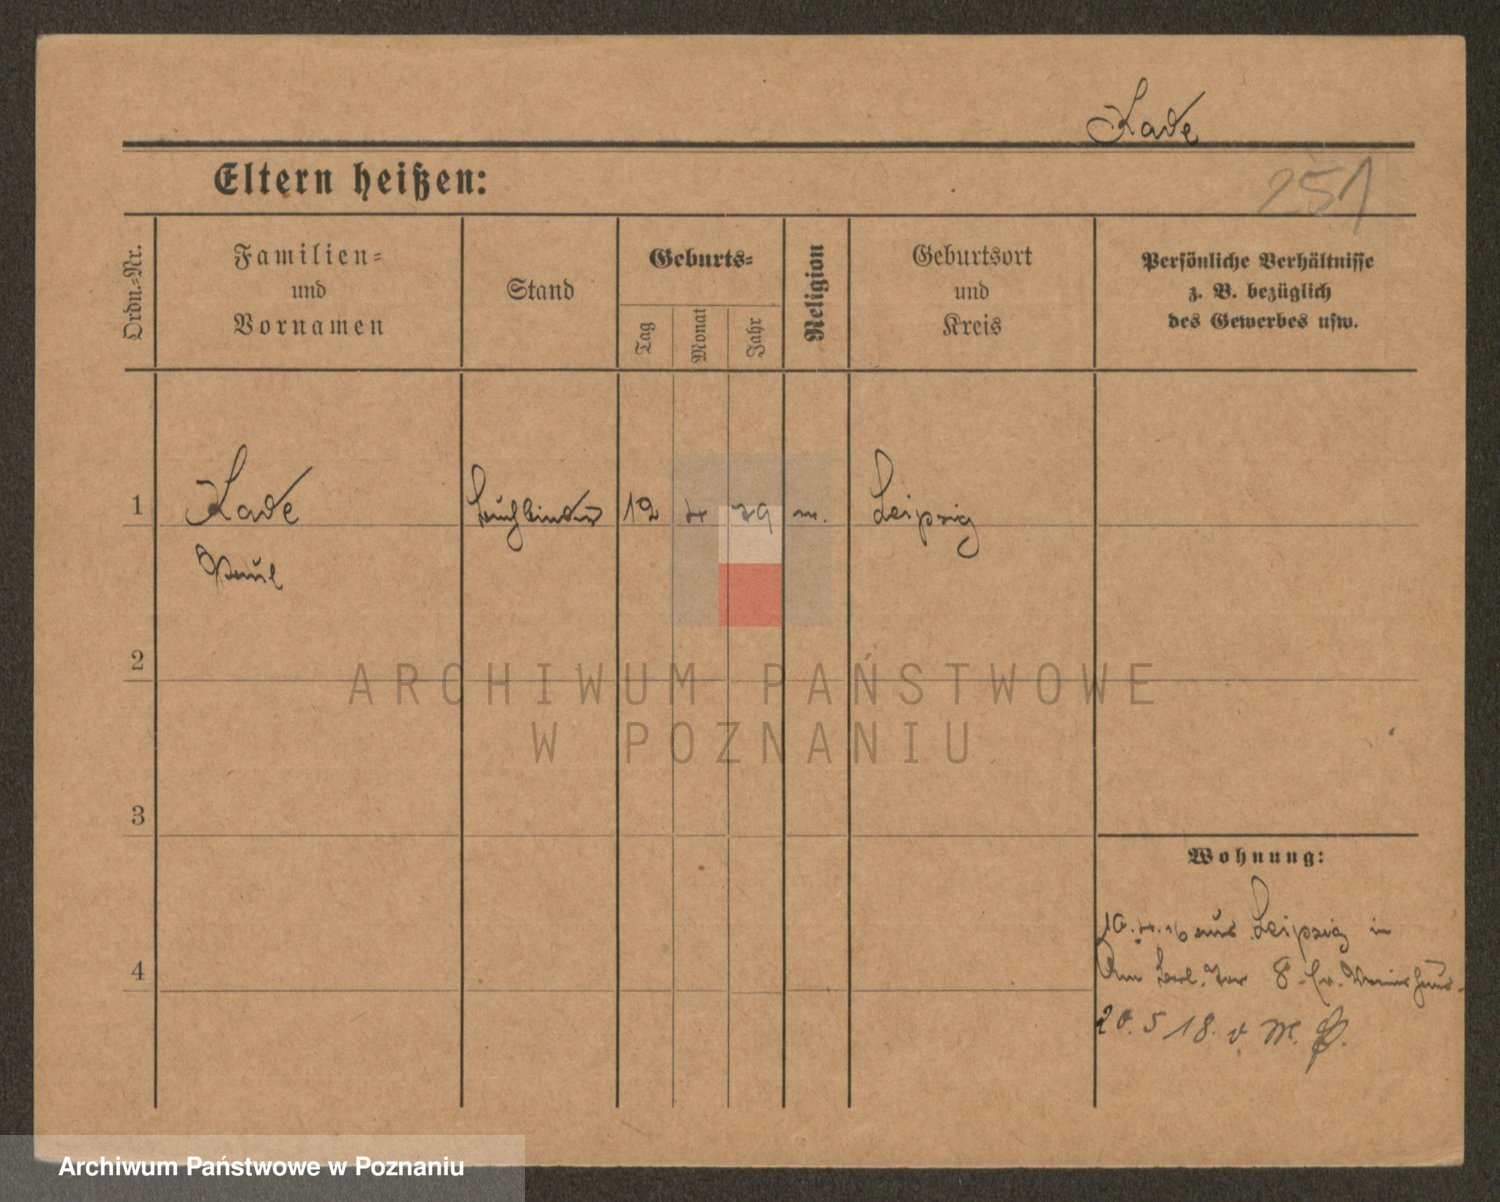 Kade
Eltern heißen:
251
Ordn.-Nr.
Familien-
und
Vornamen
Stand
Geburts-
Tag
Monat
Jahr
Religion
Geburtsort
und
Kreis
Persönliche Verhältnisse
z. B. bezüglich
des Gewerbes usw.
1
Kade
Paul
Buchbinder
12
79
Leipzig
2
ARCHIWUM PAŃSTWOWE
W POZNANIU
3
Wohnung:
aus Leipzig in
4
Am Berl. Tor 8
20. 5 18. v
Archiwum Państwowe w Poznaniu